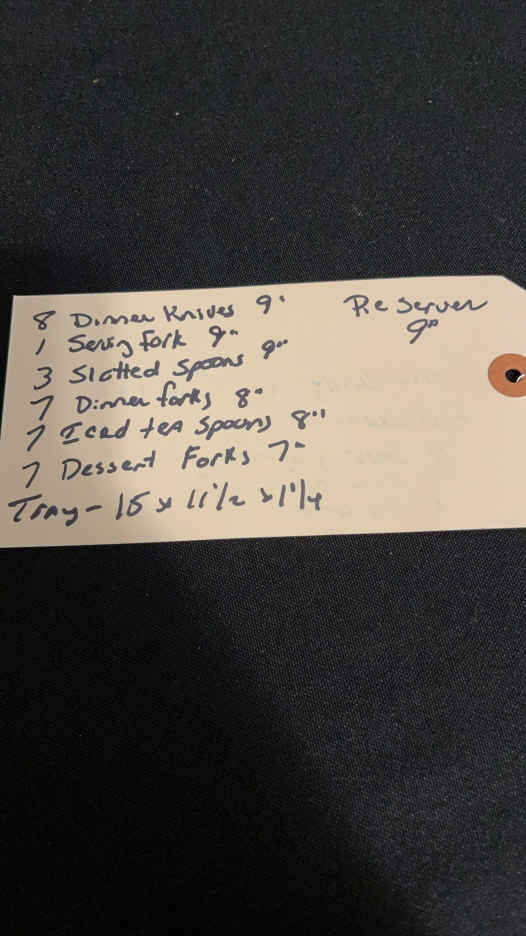 8 Dinner Knives 9"
1 Serving Fork 9"
3 Slotted Spoons 9"
7 Dinner forks 8"
7 Iced teA Spoons 8"
7 Dessert Forks 7"
Tray - 15 x 11 1/2 x 1 1/4
Pie Server
9"